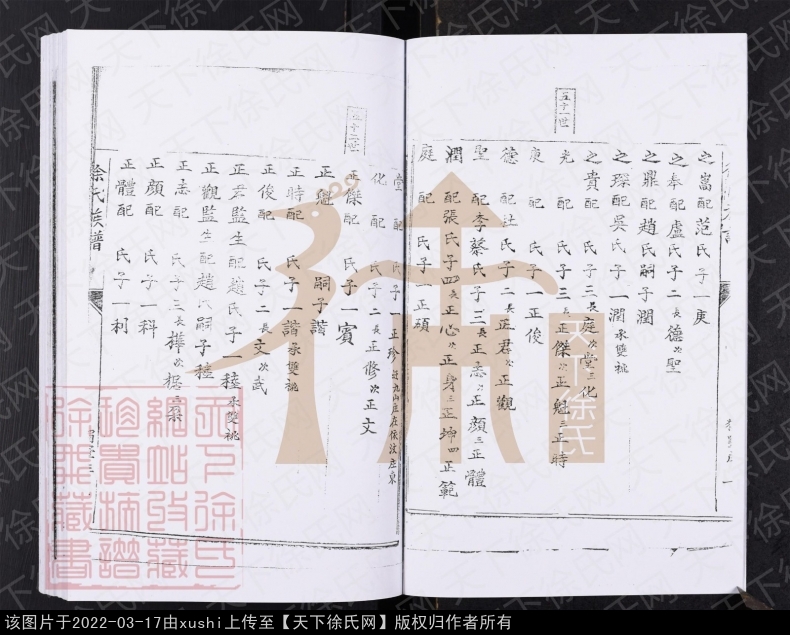 五十一世
之嵩配范氏子一庚
之奉配盧氏子二長德次聖
之鼎配趙氏嗣子潤
之琛配吳氏子一潤承雙祧
之貴配 氏子三長庭次堂三化
光 配 氏子三長正傑次正魁三正時
庚 配 氏子一正俊
德 配汪氏子二長正君次正觀
聖 配李蔡氏子三長正志次正顏三正體
潤 配張氏子四長正心次正身三正坤四正範
庭 配 氏子一正碩
堂 配 氏子一正珍
化 配 氏子二長正修次正文
五十二世
正傑配 氏子一賓
正魁 嗣子諧
正時配 氏子一諧承雙祧
正俊配 氏子二長文次武
正君監生配趙氏子一稑承雙祧
正觀監生配趙氏嗣子稑
正志配 氏子三長樺次
正顏配 氏子一科
正體配 氏子一利
徐氏族譜
天下徐氏
天下徐氏网
该图片于2022-03-17由xushi上传至【天下徐氏网】版权归作者所有